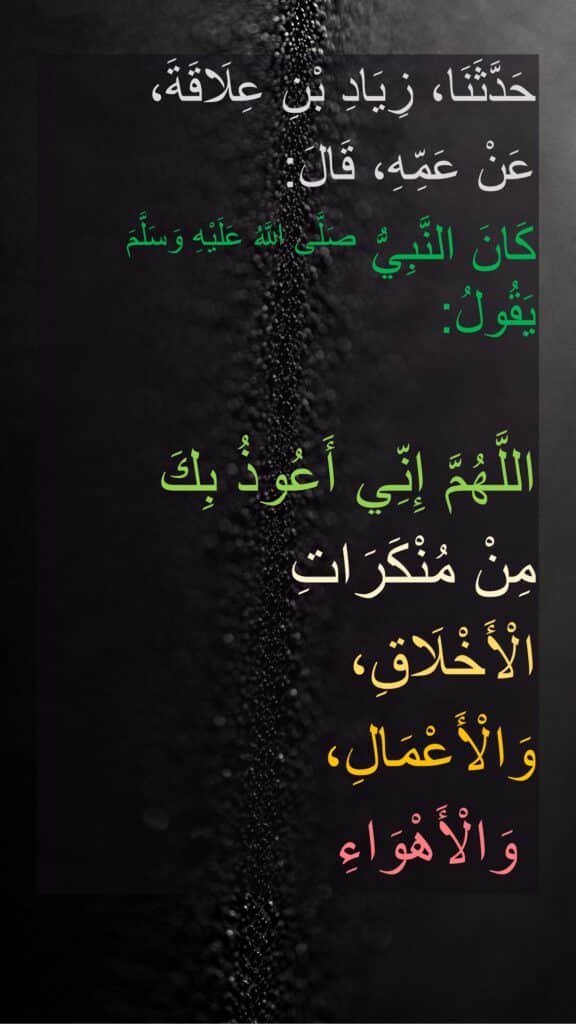 حَدَّثَنَا، زِيَادِ بْنِ عِلَاقَةَ،
عَنْ عَمِّهِ، قَالَ:
كَانَ النَّبِيُّ صَلَّى اللَّهُ عَلَيْهِ وَسَلَّمَ
يَقُولُ:
اللَّهُمَّ إِنِّي أَعُوذُ بِكَ
مِنْ مُنْكَرَاتِ
الْأَخْلَاقِ،
وَالْأَعْمَالِ،
وَالْأَهْوَاءِ